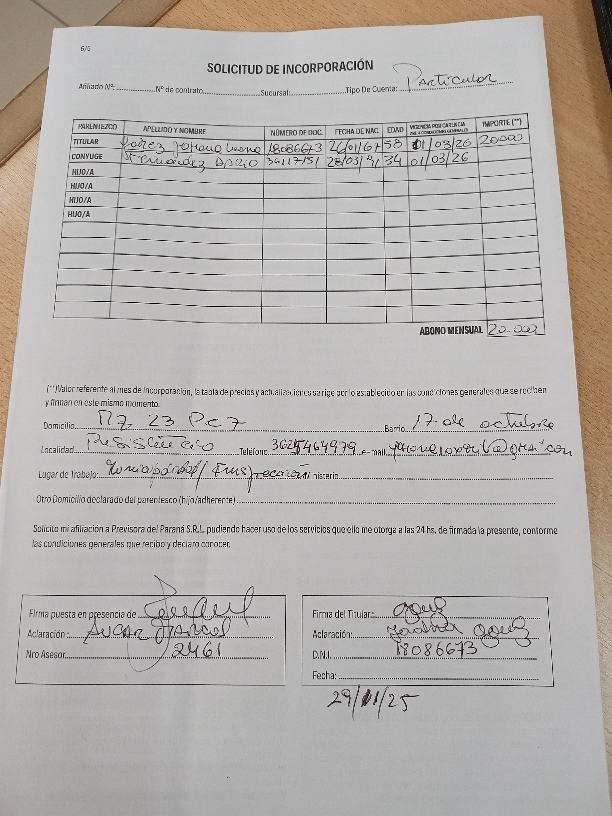 6/6
SOLICITUD DE INCORPORACIÓN
Afiliado Nº: Nº de contrato Sucursal: Tipo De Cuenta: Particular
PARENTEZCO APELLIDO Y NOMBRE NÚMERO DE DOC. FECHA DE NAC. EDAD IMPORTE (**)
TITULAR 18086673 26/01/67 58 01/03/26 20000
CONYUGE 28/03/91 34 01/03/26
HIJO/A
HIJO/A
HIJO/A
HIJO/A
ABONO MENSUAL 20.000
(**)Valor referente al mes de incorporación, la tabla de precios y actualizaciones se rige por lo establecido en las condiciones generales que se reciben
y firman en este mismo momento.
Domicilio Mz 23 Pc 7 Barrio: 17 de octubre
Localidad Resistencia Teléfono: 3625464979 e-mail
Lugar de Trabajo: Ministerio
Otro Domicilio declarado del parentesco (hijo/adherente)
Solicito mi afiliación a Previsora del Paraná S.R.L. pudiendo hacer uso de los servicios que ello me otorga a las 24 hs. de firmada la presente, conforme
las condiciones generales que recibo y declaro conocer.
Firma puesta en presencia de
Aclaración:
Nro Asesor 2461
Firma del Titular:
Aclaración:
D.N.I. 18086673
Fecha:
29/11/25